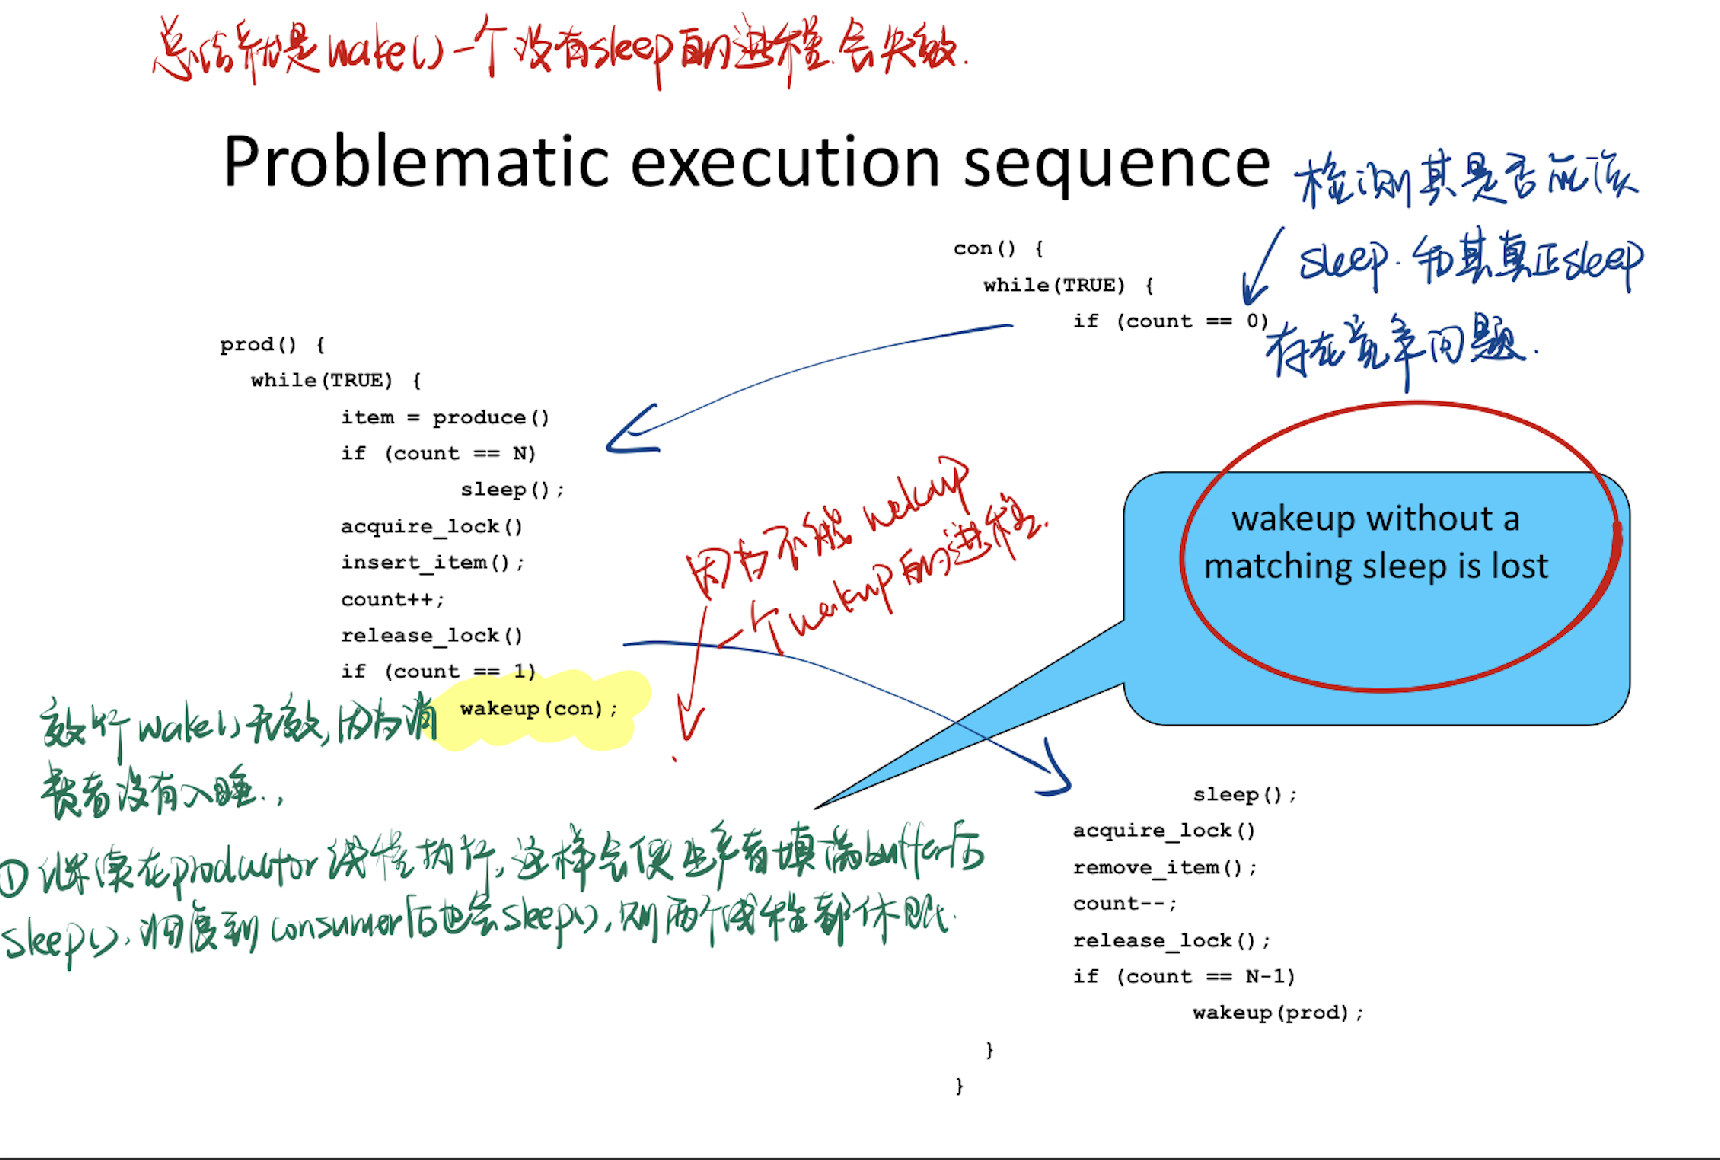 总结就是wake()一个没有sleep的进程会失效.
Problematic execution sequence
检测其是否应该
sleep.和其真正sleep
存在竞争问题.
con() {
while(TRUE) {
if (count == 0)
prod() {
while(TRUE) {
item = produce()
if (count == N)
sleep();
acquire_lock()
insert_item();
count++;
release_lock()
if (count == 1)
wakeup(con);
因为不能wekaup
一个wakup的进程.
wakeup without a
matching sleep is lost
wake()无效,因为消
费者没有入睡.,
①继续在productor线程执行,这样会使生产者填满buffer后
sleep(),调度到consumer后也会sleep(),则两个线程都休眠.
sleep();
acquire_lock()
remove_item();
count--;
release_lock();
if (count == N-1)
wakeup(prod);
}
}